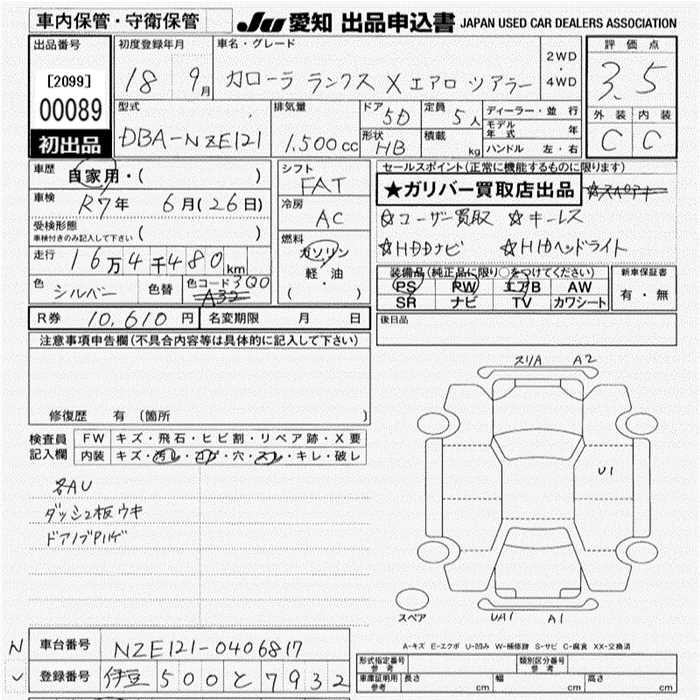 車内保管・守衛保管
JU 愛知 出品申込書 JAPAN USED CAR DEALERS ASSOCIATION
出品番号
[2099]
00089
初出品
初度登録年月
18 9月
車名・グレード
カローラ ランクス X エアロ ツアラー
2WD・4WD
評価点
3.5
外装 内装
C C
型式
DBA-NZE121
排気量
1.500cc
ドア 5D
形状 HB
定員 5人
積載 kg
ディーラー・並行
モデル年式 年
ハンドル 左・右
車歴
自家用・( )
車検
R7年 6月(26日)
受検形態
車検付きのみ記入して下さい ( )
走行
16万4千480km
色 シルバー 色替 色コード 3Q0
A32
シフト
FAT
冷房
AC
燃料
ガソリン
軽・油
( )
セールスポイント(正常に機能するものに限ります)
★ガリバー買取店出品 ☆スペアキー
☆ユーザー買取 ☆キーレス
☆HDDナビ ☆HIDヘッドライト
装備品(純正品に限り○をつけてください)
PS PW エアB AW
SR ナビ TV カワシート
新車保証書
有・無
R券 10,610円 名変期限 月 日
後日品
注意事項申告欄(不具合内容等は具体的に記入して下さい)
修復歴 有 (箇所 )
検査員記入欄
FW キズ・飛石・ヒビ割・リペア跡・X要
内装 キズ・汚レ・コゲ・穴・スレ・キレ・破レ
各AU
ダッシュ板ウキ
ドアノブPハゲ
スリA A2
U1
スペア
UA1 A1
A-キズ E-エクボ U-凹み W-補修跡 S-サビ C-腐食 XX-交換済
N 車台番号 NZE121-0406817
登録番号 伊豆 500 と 7932
形式指定番号 参考
類別区分番号 参考
車庫証明用 参考 長さ cm 幅 cm 高さ cm